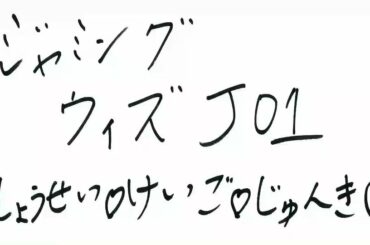 ジャミング
ウィズ J01
しょうせい♡けいご♡じゅんき